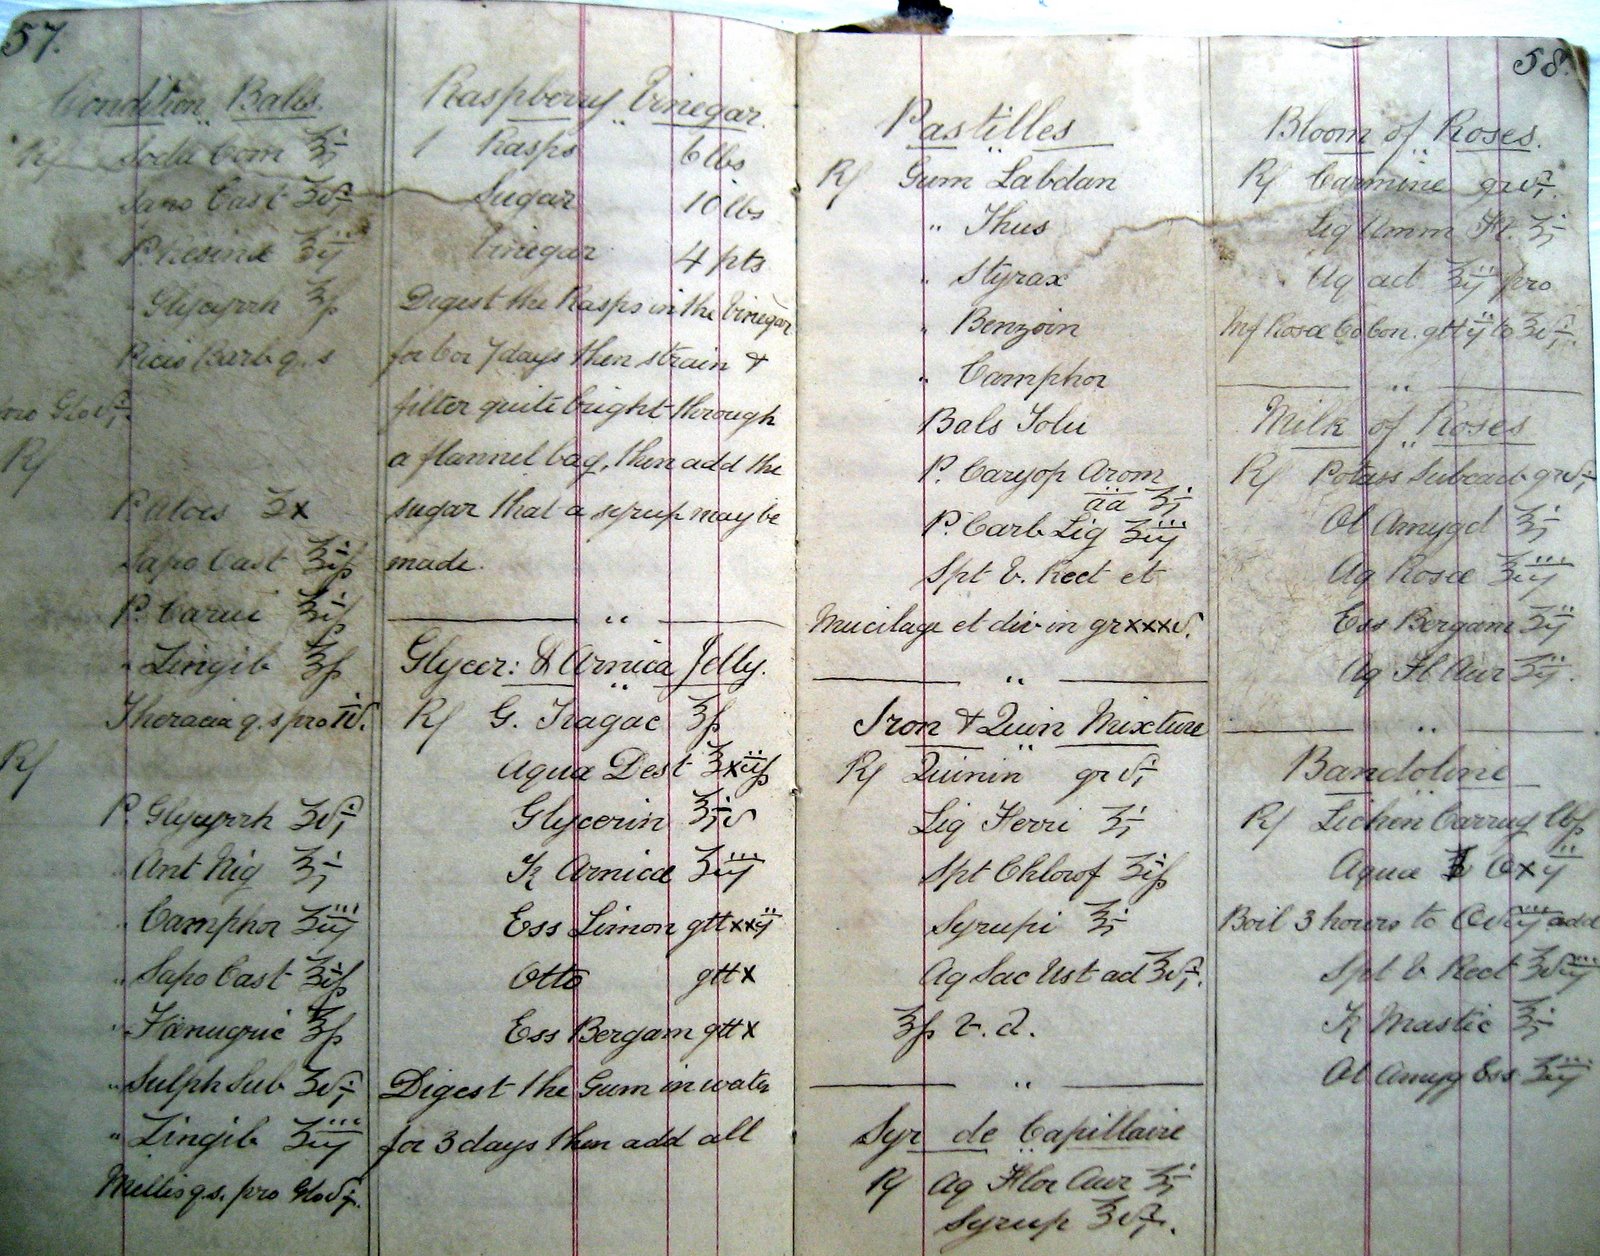 57.
Condition Balls.
Rx Sodæ Com ʒi
Sapo Cast ʒvi
P. Resinæ ʒij
" Glycyrrh ℥ß
Picis Barb q. s
pro Glo vi.
Rx
P. Aloes ʒx
Sapo Cast ʒiß
P. Carui ʒiß
" Zingib ʒß
Theracia q. s pro iv.
Rx
P. Glycyrrh ʒvi
" Ant Nig ℥i
" Camphor ʒiij
" Sapo Cast ʒiß
" Fœnugric ℥ß
" Sulph Sub ʒvi
" Zingib ʒiij
Mellis q.s. pro Glo vi.
Raspberry Vinegar.
1 Rasps 6 lbs
Sugar 10 lbs
Vinegar 4 pts
Digest the Rasps in the Vinegar
for 6 or 7 days then strain &
filter quite bright through
a flannel bag, then add the
sugar that a syrup may be
made.
"
Glycer: & Arnica Jelly.
Rx G. Tragac ℥ß
Aqua Dest ℥xijß
Glycerin ℥iv
Tr Arnicæ ʒiij
Ess Limon gtt xxij
Otto gtt x
Ess Bergam gtt x
Digest the Gum in water
for 3 days then add all
58.
Pastilles
Rx Gum Labdan
" Thus
" Styrax
" Benzoin
" Camphor
Bals Tolu
P. Caryop Arom
āā ʒi
P. Carb Lig ʒiij
Spt V. Rect et
Mucilage et div in gr xxxv.
"
Iron & Quin Mixture
Rx Quinin gr vi
Liq Ferri ʒi
Spt Chlorof ʒiß
Syrupi ℥i
Aq Sac Ust ad ℥vi.
℥ß t. d.
"
Syr de Capillaire
Rx Aq Flor Aur ℥i
Syrup ℥vi.
Bloom of Roses.
Rx Carmine gr vi.
Liq Amm Ft. ʒi
Aq ad ℥ij pro
Inf Rosæ Co bon. gtt ij to ℥vi.
"
Milk of Roses
Rx Potass Subcarb gr vi
Ol Amygd ℥i
Aq Rosæ ℥iij
Ess Bergam ʒij
Aq Fl Aur ℥ij.
"
Bandoline
Rx Lichen Carrag lbß
Aquæ O xij
Boil 3 hours to O viij add
Spt V Rect ℥viij
Tr Mastic ℥i
Ol Amyg Ess ʒiij